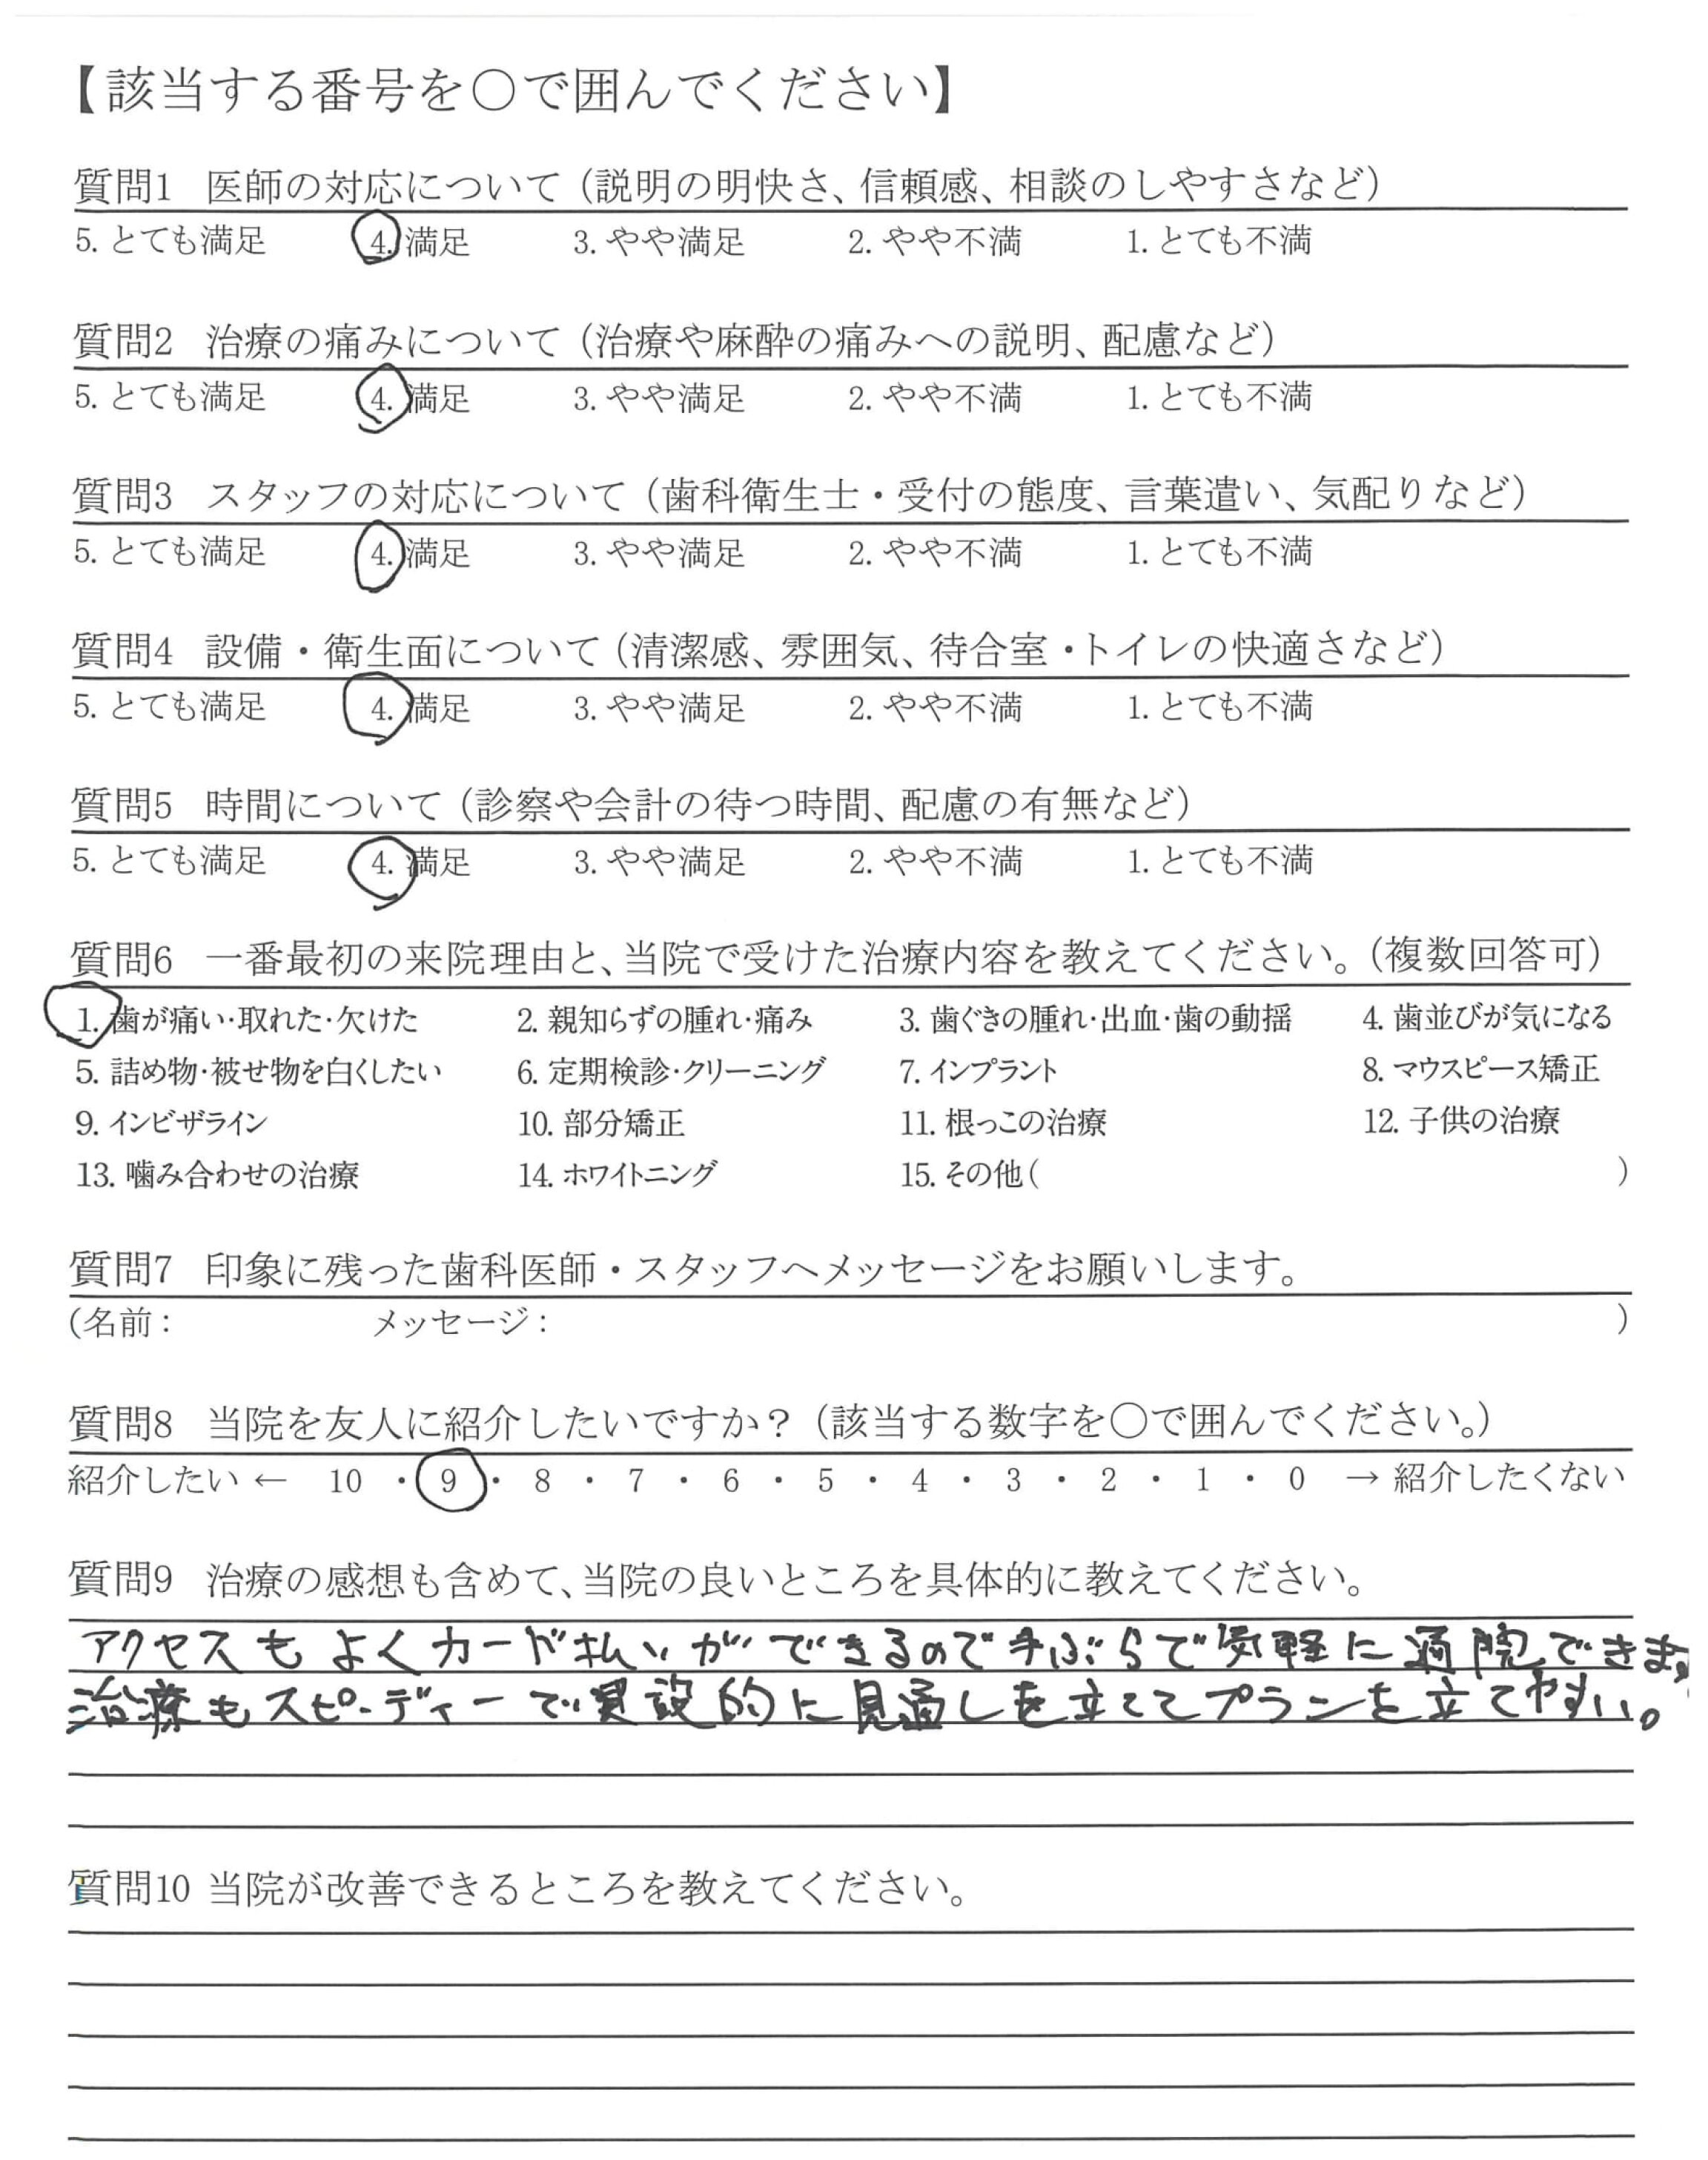 【該当する番号を○で囲んでください】
質問1 医師の対応について（説明の明快さ、信頼感、相談のしやすさなど）
5. とても満足 4. 満足 3. やや満足 2. やや不満 1. とても不満
質問2 治療の痛みについて（治療や麻酔の痛みへの説明、配慮など）
5. とても満足 4. 満足 3. やや満足 2. やや不満 1. とても不満
質問3 スタッフの対応について（歯科衛生士・受付の態度、言葉遣い、気配りなど）
5. とても満足 4. 満足 3. やや満足 2. やや不満 1. とても不満
質問4 設備・衛生面について（清潔感、雰囲気、待合室・トイレの快適さなど）
5. とても満足 4. 満足 3. やや満足 2. やや不満 1. とても不満
質問5 時間について（診察や会計の待つ時間、配慮の有無など）
5. とても満足 4. 満足 3. やや満足 2. やや不満 1. とても不満
質問6 一番最初の来院理由と、当院で受けた治療内容を教えてください。（複数回答可）
1. 歯が痛い・取れた・欠けた 2. 親知らずの腫れ・痛み 3. 歯ぐきの腫れ・出血・歯の動揺 4. 歯並びが気になる
5. 詰め物・被せ物を白くしたい 6. 定期検診・クリーニング 7. インプラント 8. マウスピース矯正
9. インビザライン 10. 部分矯正 11. 根っこの治療 12. 子供の治療
13. 噛み合わせの治療 14. ホワイトニング 15. その他（ ）
質問7 印象に残った歯科医師・スタッフへメッセージをお願いします。
（名前： メッセージ： ）
質問8 当院を友人に紹介したいですか？（該当する数字を○で囲んでください。）
紹介したい ← 10 ・ 9 ・ 8 ・ 7 ・ 6 ・ 5 ・ 4 ・ 3 ・ 2 ・ 1 ・ 0 → 紹介したくない
質問9 治療の感想も含めて、当院の良いところを具体的に教えてください。
アクセスもよくカード払いができるので手ぶらで気軽に通院できます
治療もスピーディーで 的に見通しを立ててプランを立てやすい。
質問10 当院が改善できるところを教えてください。